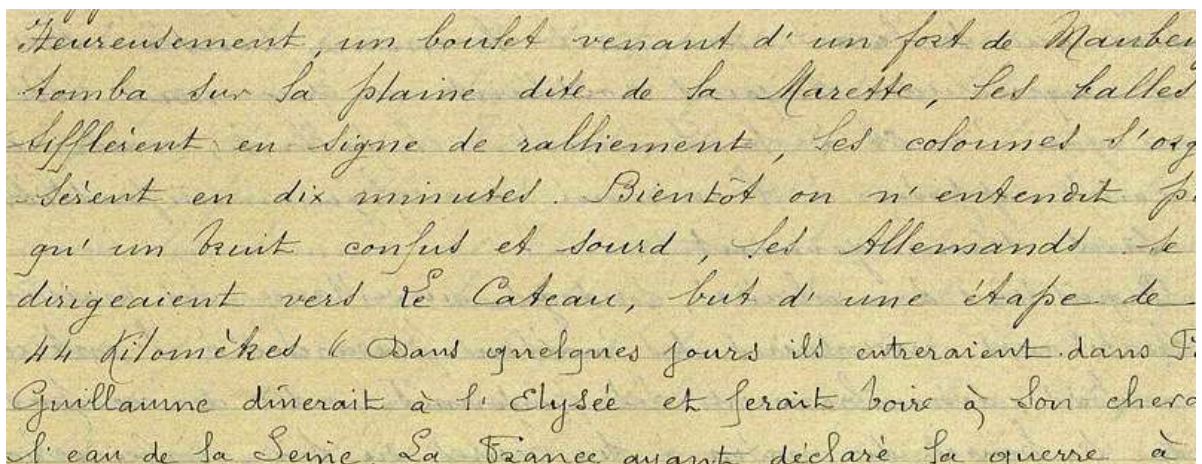 Heureusement, un boulet venant d'un fort de Maubeu
tomba sur la plaine dite de la Marette, les balles
sifflèrent en signe de ralliement, les colonnes s'org
sèrent en dix minutes. Bientôt on n'entendit p
qu'un bruit confus et sourd, les Allemands se
dirigeaient vers Le Cateau, but d'une étape de
44 Kilomètres " Dans quelques jours ils entreraient dans
Guillaume dînerait à l'Elysée et ferait boire à son cheva
l'eau de la Seine La France ayant déclaré la guerre à